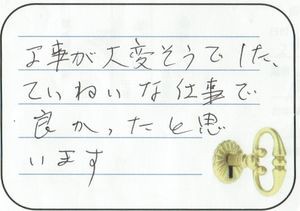 工事が大変そうでした、
ていねいな仕事で
良かったと思
います